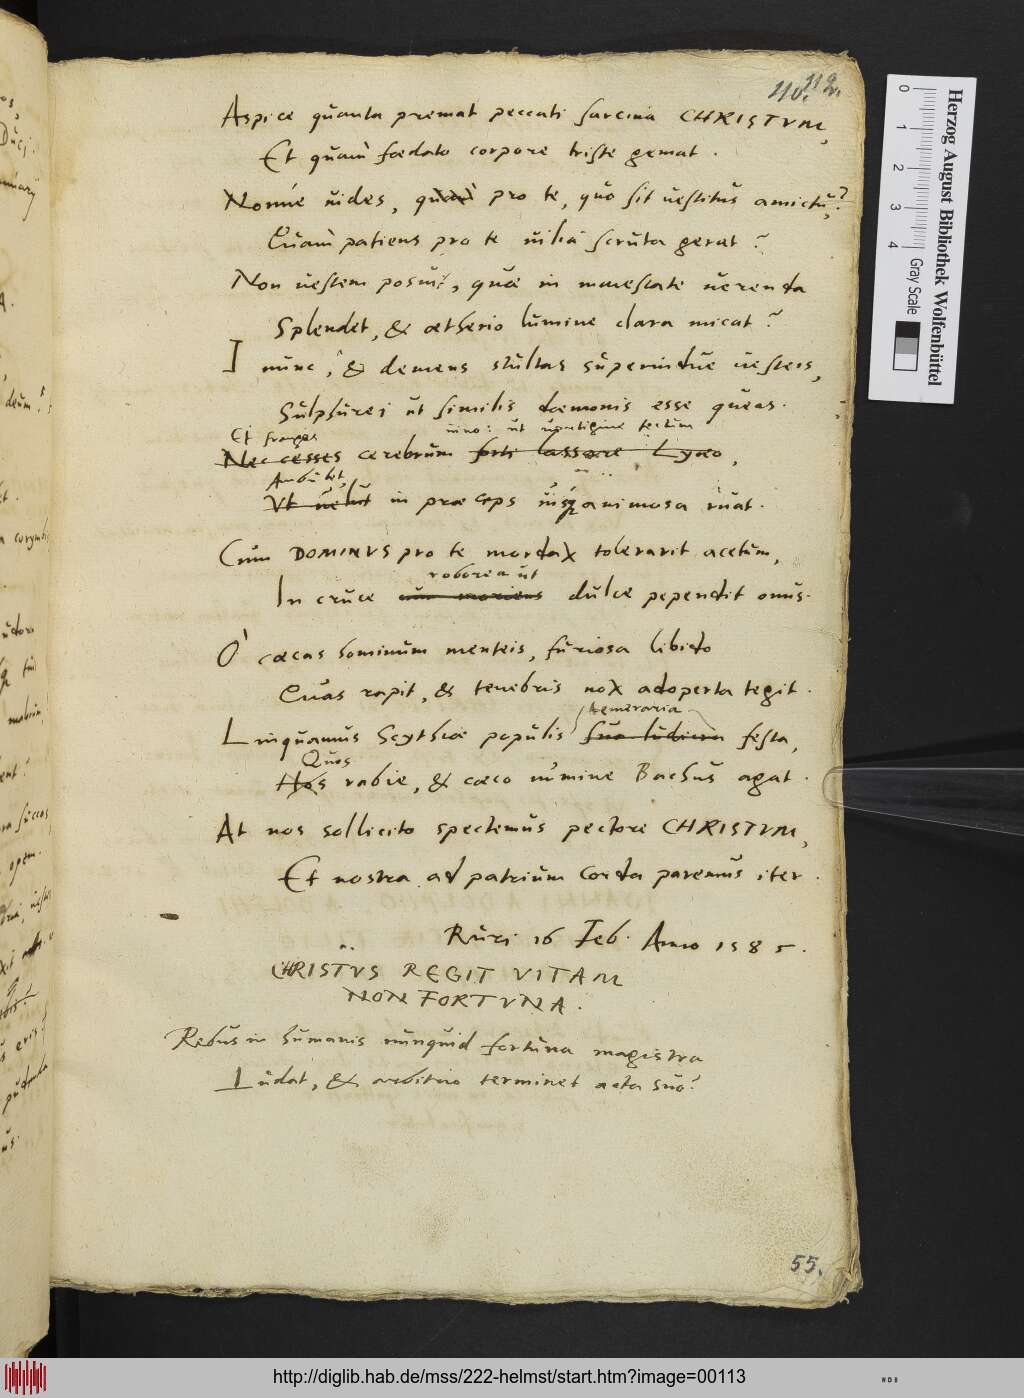 112.
Aspice quanta premat peccati sarcina CHRISTVM,
Et quàm fœdato corpore triste gemat.
Nonne uides, quàm pro te, quo sit uestitus amictu,?
Quàm patiens pro te uilia scruta gerat?
Non uestem posuit, quæ in maiestate uerenda
Splendet, & ætherio lumine clara micat?
I nunc, & demens stultas superindue uesteis,
Sulphurei ut similis dæmonis esse queas.
Et franges uino: ut uertigine tectum
Nec cesses cerebrum forti lassare Lyæo,
Ambulet,
Vt uelut in præceps animosa ruat.
Cùm DOMINVS pro te mordax tolerarit acetum,
roborea ut
In cruce moriens dulce pependit onus.
O cæcas hominum menteis, furiosa libido
Quas rapit, & tenebris nox adoperta tegit.
temeraria
Linquamus Scythiæ populis sua ludicra festa,
Quos
Hos rabie, & cæco numine Bachus agat.
At nos sollicito spectemus pectore CHRISTVM,
Et nostra ad patrium corda paremus iter.
Ruri 16 Feb. Anno 1585.
CHRISTVS REGIT VITAM
NON FORTVNA.
Rebus in humanis nunquid fortuna magistra
Ludat, & arbitrio terminet acta suo?
55.
Herzog August Bibliothek Wolfenbüttel
0 1 2 3 4 Gray Scale
http://diglib.hab.de/mss/222-helmst/start.htm?image=00113
WDB